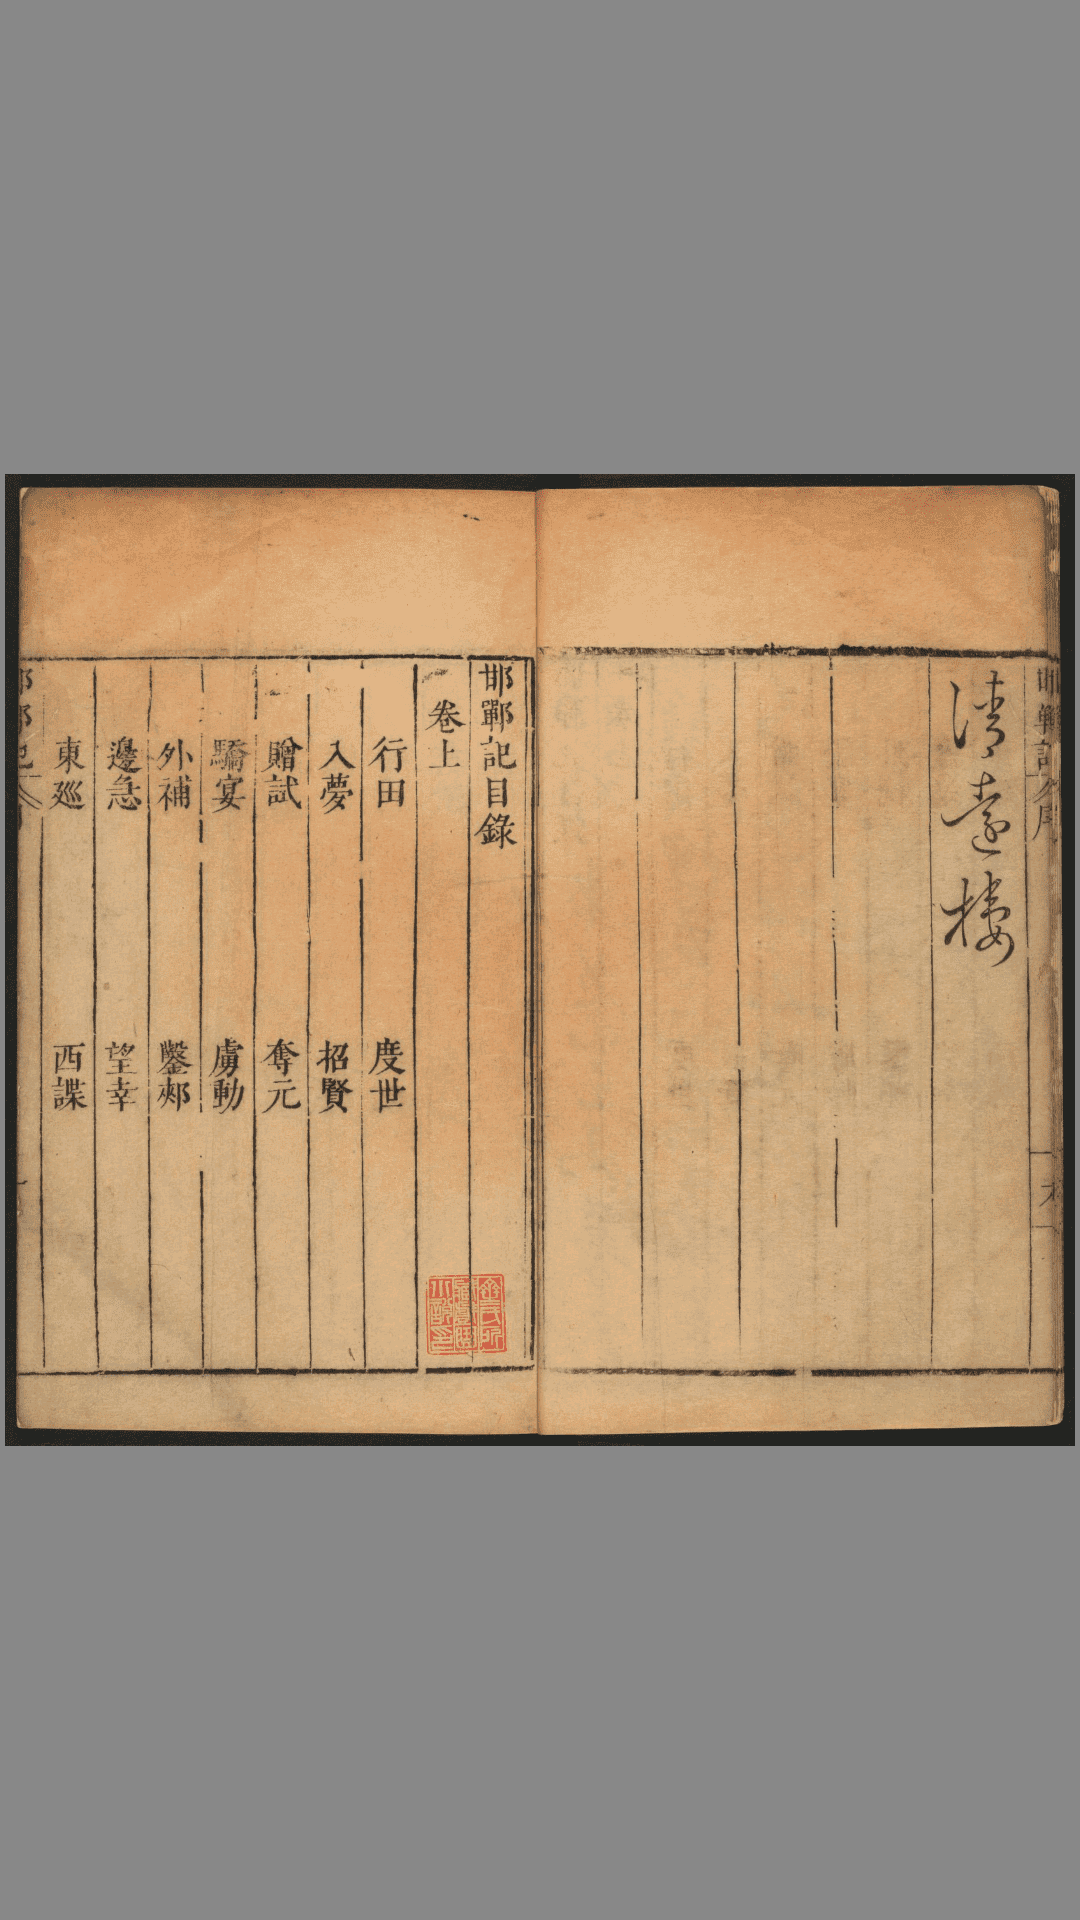 邯鄲記
清遠樓
邯鄲記目錄
卷上
行田 度世
入夢 招賢
贈試 奪元
驕宴 虜動
外補 鑿郟
邊急 望幸
東巡 西諜